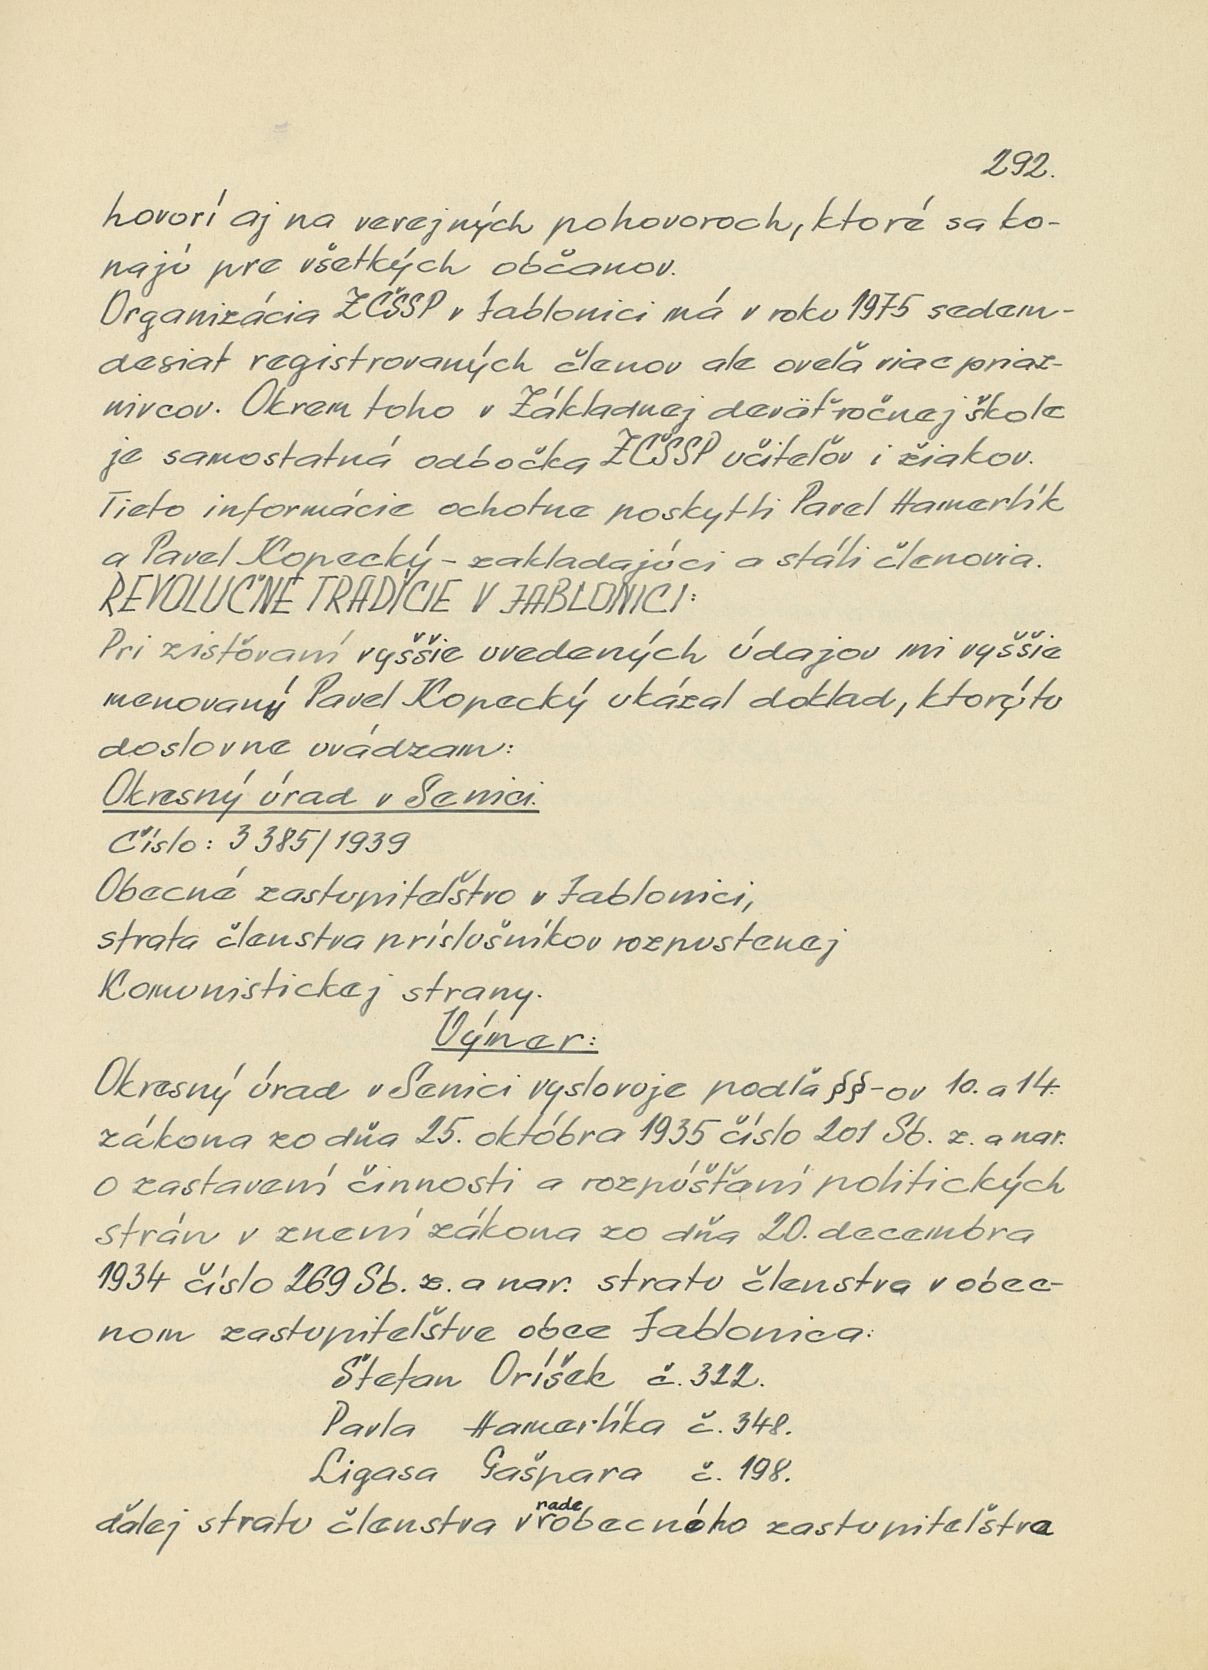 292.
hovorí aj na verejných pohovoroch, ktoré sa ko-
najú pre všetkých občanov.
Organizácia ZČSSP v Jablonici má v roku 1975 sedem-
desiat registrovaných členov ale oveľa viac priaz-
nivcov. Okrem toho v Základnej deväťročnej škole
je samostatná odbočka ZČSSP učiteľov i žiakov.
Tieto informácie ochotne poskytli Pavel Hamerlík
a Pavel Kopecký - zakladajúci a stáli členovia.
REVOLUČNÉ TRADÍCIE V JABLONICI:
Pri zisťovaní vyššie uvedených údajov mi vyššie
menovaný Pavel Kopecký ukázal doklad, ktorý tu
doslovne uvádzam:
Okresný úrad v Senici.
Číslo: 3385/1939
Obecné zastupiteľstvo v Jablonici,
strata členstva príslušníkov rozpustenej
Komunistickej strany.
Výmer:
Okresný úrad v Senici vyslovuje podľa §§-ov 10. a 14.
zákona zo dňa 25. októbra 1935 číslo 201 Sb. z. a nar.
o zastavení činnosti a rozpúšťaní politických
strán v znení zákona zo dňa 20. decembra
1934 číslo 269 Sb. z. a nar. stratu členstva v obec-
nom zastupiteľstve obce Jablonica:
Štefan Oríšek č. 322.
Pavla Hamerlíka č. 348.
Ligasa Gašpara č. 198.
ďalej stratu členstva v rade obecného zastupiteľstva